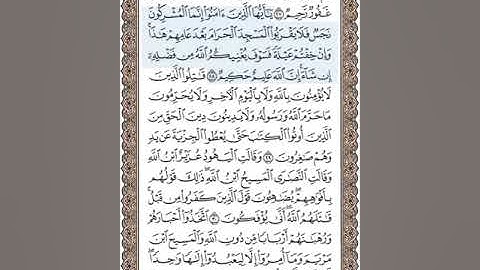 غَفُورٌ رَّحِيمٌ ٢٧ يَٰٓأَيُّهَا ٱلَّذِينَ ءَامَنُوٓاْ إِنَّمَا ٱلْمُشْرِكُونَ
نَجَسٌ فَلَا يَقْرَبُواْ ٱلْمَسْجِدَ ٱلْحَرَامَ بَعْدَ عَامِهِمْ هَٰذَا ۚ
وَإِنْ خِفْتُمْ عَيْلَةً فَسَوْفَ يُغْنِيكُمُ ٱللَّهُ مِن فَضْلِهِۦٓ
إِن شَآءَ ۚ إِنَّ ٱللَّهَ عَلِيمٌ حَكِيمٌ ٢٨ قَٰتِلُواْ ٱلَّذِينَ
لَا يُؤْمِنُونَ بِٱللَّهِ وَلَا بِٱلْيَوْمِ ٱلْءَاخِرِ وَلَا يُحَرِّمُونَ
مَا حَرَّمَ ٱللَّهُ وَرَسُولُهُۥ وَلَا يَدِينُونَ دِينَ ٱلْحَقِّ مِنَ
ٱلَّذِينَ أُوتُواْ ٱلْكِتَٰبَ حَتَّىٰ يُعْطُواْ ٱلْجِزْيَةَ عَن يَدٍ
وَهُمْ صَٰغِرُونَ ٢٩ وَقَالَتِ ٱلْيَهُودُ عُزَيْرٌ ٱبْنُ ٱللَّهِ
وَقَالَتِ ٱلنَّصَٰرَى ٱلْمَسِيحُ ٱبْنُ ٱللَّهِ ۖ ذَٰلِكَ قَوْلُهُم
بِأَفْوَٰهِهِمْ ۖ يُضَٰهِـُٔونَ قَوْلَ ٱلَّذِينَ كَفَرُواْ مِن قَبْلُ ۚ
قَٰتَلَهُمُ ٱللَّهُ ۚ أَنَّىٰ يُؤْفَكُونَ ٣٠ ٱتَّخَذُوٓاْ أَحْبَارَهُمْ
وَرُهْبَٰنَهُمْ أَرْبَابًا مِّن دُونِ ٱللَّهِ وَٱلْمَسِيحَ ٱبْنَ
مَرْيَمَ وَمَآ أُمِرُوٓاْ إِلَّا لِيَعْبُدُوٓاْ إِلَٰهًا وَٰحِدًا ۖ